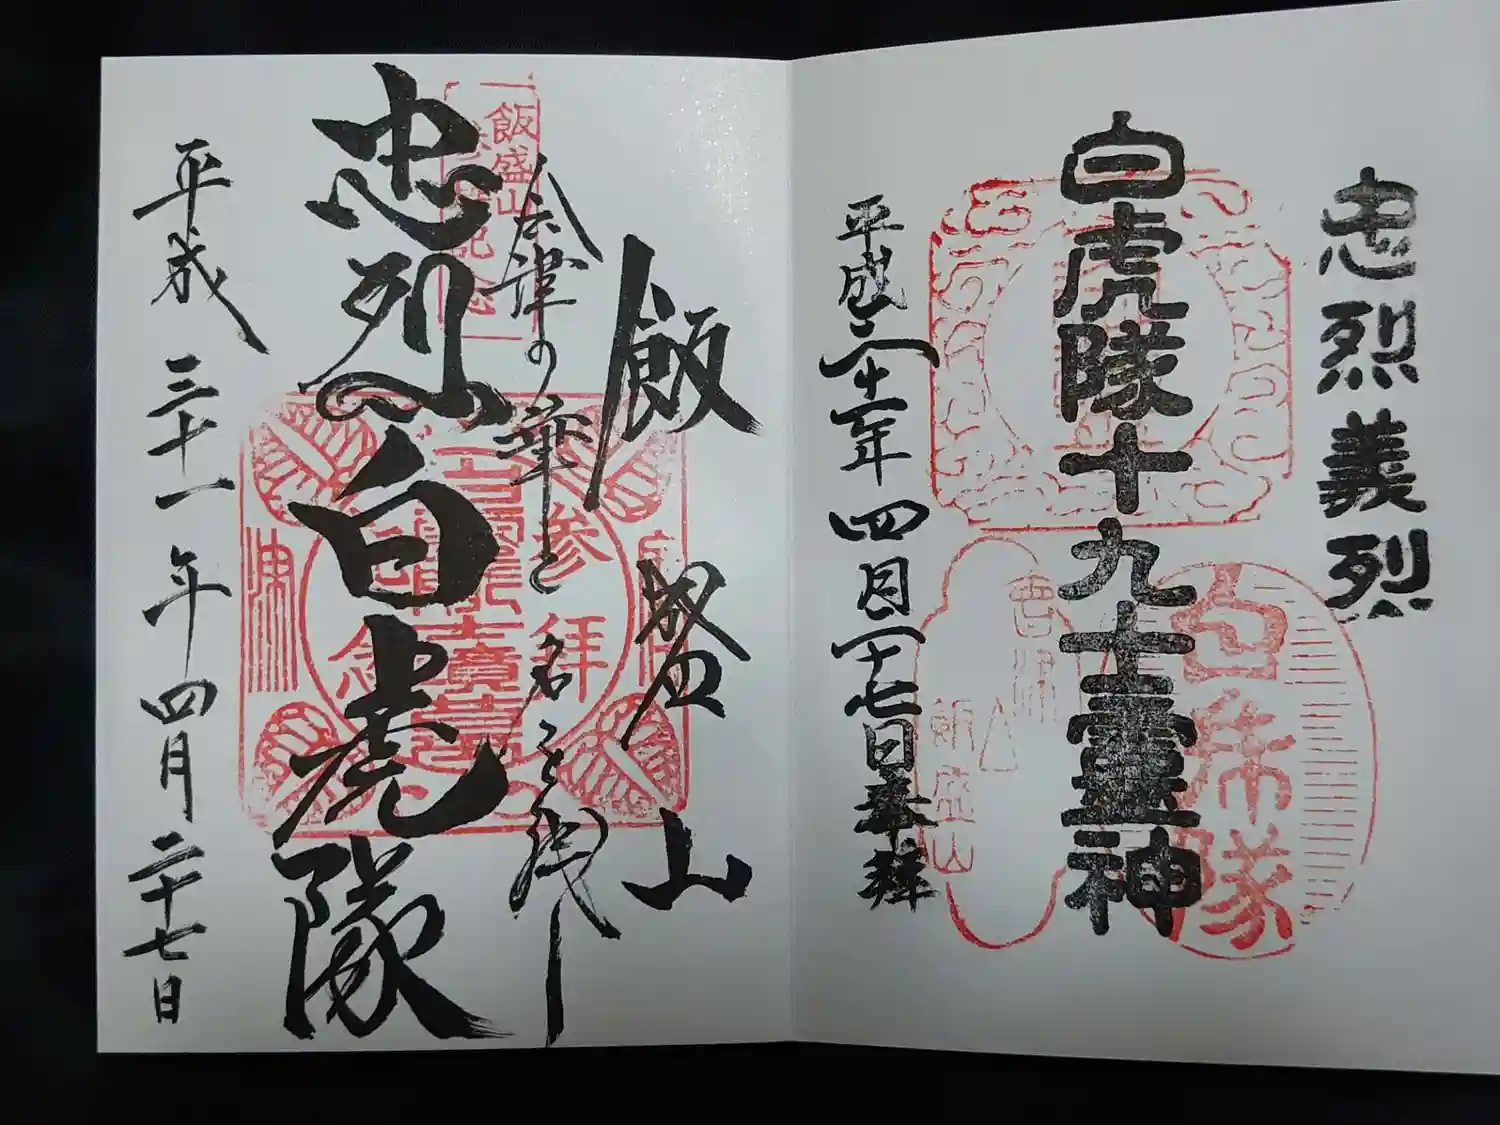 忠烈義烈
白虎隊十九士靈神
平成三十一年四月二十七日奉拝
白虎隊
飯盛山
飯盛山
会津の華と名を残し
忠烈白虎隊
平成三十一年四月二十七日
飯盛山
参拝